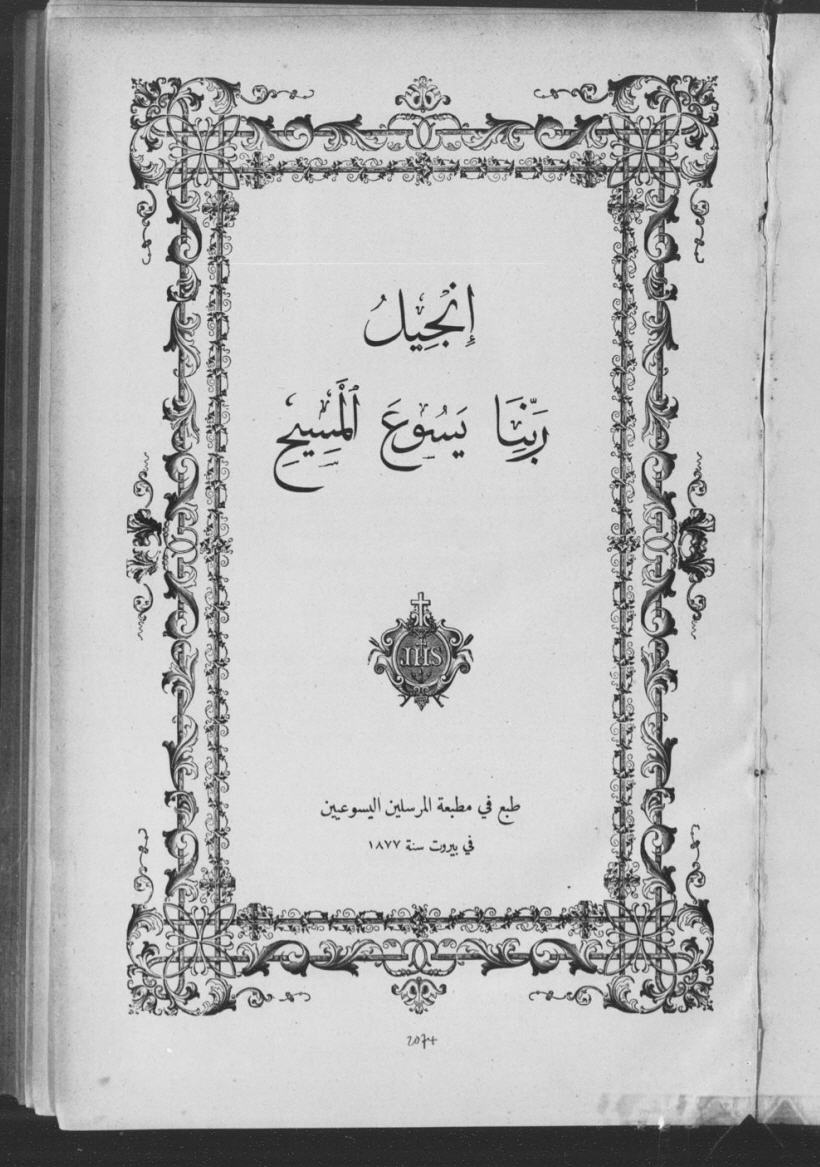 إِنْجِيلُ
رَبِّنَا يَسُوعَ ٱلْمَسِيحِ
IHS
طبع في مطبعة المرسلين اليسوعيين
في بيروت سنة ١٨٧٧